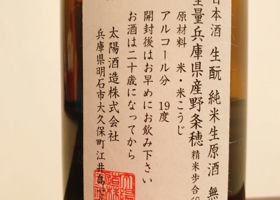 日本酒 生酛 純米生原酒 無
全量兵庫県産野条穂 精米歩合
原材料 米・米こうじ
アルコール分 19度
開封後はお早めにお飲み下さい
お酒は二十歳になってから
太陽酒造株式会社
兵庫県明石市大久保町江井島